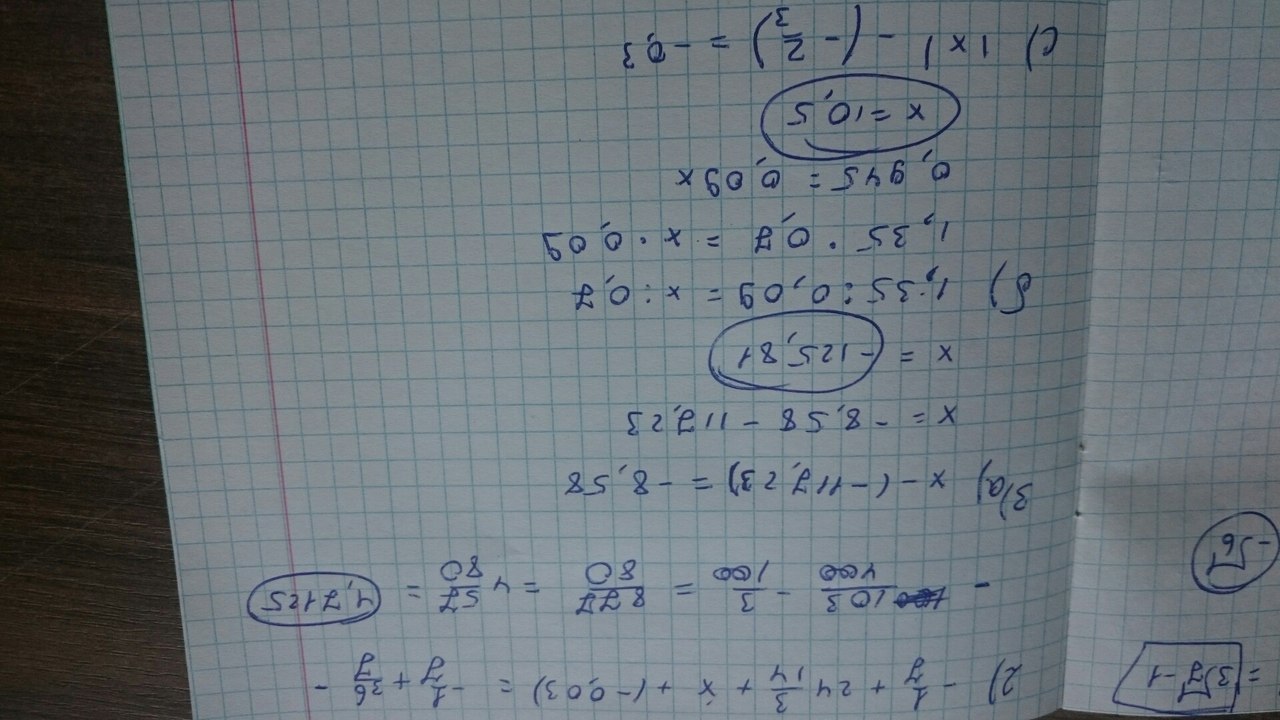 = 3√7 -1
-√6
2) - 1/7 + 24 3/14 + x + (-0,03) = - 1/7 + 36/7 -
- 103/400 - 3/100 = 377/80 = 4 57/80 = 4,7125
3) a) x - (-117,23) = -8,58
x = -8,58 - 117,23
x = -125,81
б) 1,35 : 0,09 = x : 0,7
1,35 · 0,7 = x · 0,09
0,945 = 0,09x
x = 10,5
c) |x| - (- 2/3) = -0,3